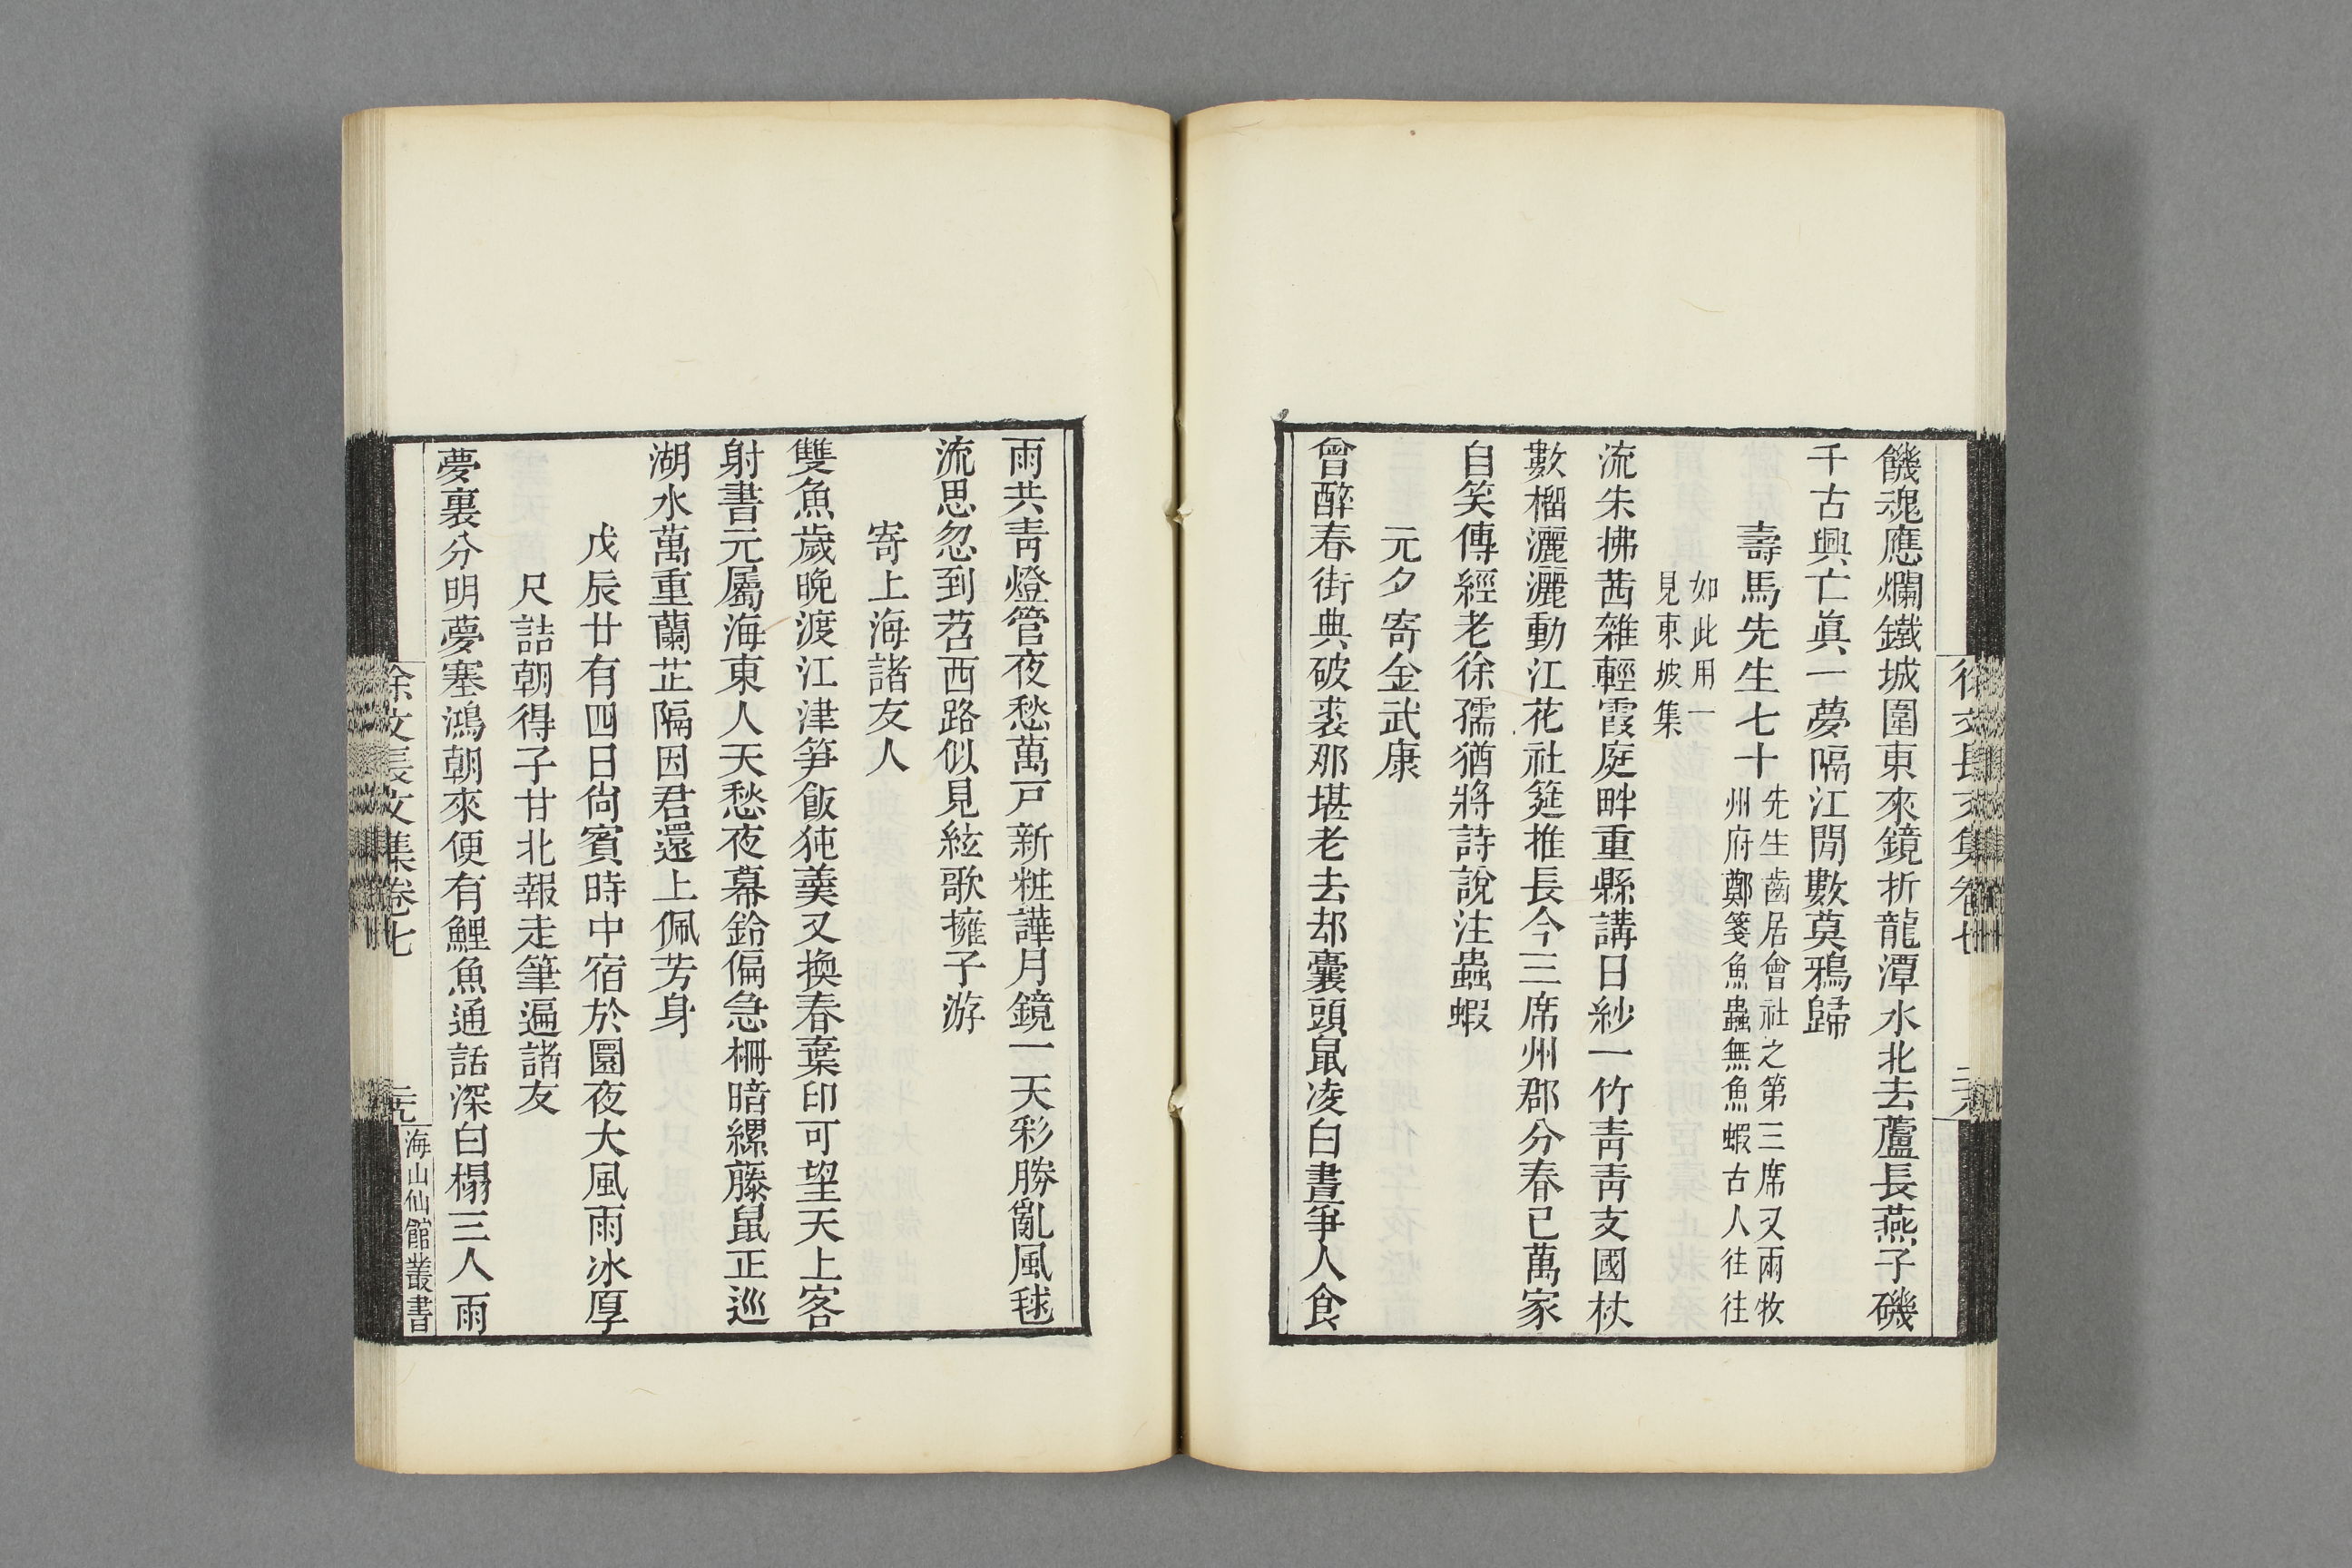 饑魂應爛鐵城圍東來鏡折龍潭水北去蘆長燕子磯
千古興亡眞一夢隔江閒數莫鴉歸
壽馬先生七十
先生齒居會社之第三席又兩牧
州府鄭箋魚蟲無魚蝦古人往往
如此用一
見東坡集
流朱拂茜雜輕霞庭畔重縣講日紗一竹靑靑支國杖
數榴灑灑動江花社筵推長今三席州郡分春已萬家
自笑傳經老徐孺猶將詩說注蟲蝦
元夕寄金武康
曾醉春街典破裘那堪老去却囊頭鼠凌白晝爭人食
徐文長文集卷七
雨共靑燈管夜愁萬戸新粧譁月鏡一天彩勝亂風毬
流思忽到苕西路似見絃歌擁子游
寄上海諸友人
雙魚歲晩渡江津笋飯㹠羮又換春葉印可望天上客
射書元屬海東人天愁夜幕鈴偏急柵暗縲藤鼠正巡
湖水萬重蘭芷隔因君還上佩芳身
戊辰廿有四日尙賓時中宿於圜夜大風雨冰厚
尺詰朝得子甘北報走筆遍諸友
夢裏分明夢塞鴻朝來便有鯉魚通話深白榻三人雨
徐文長文集卷七
海山仙館叢書